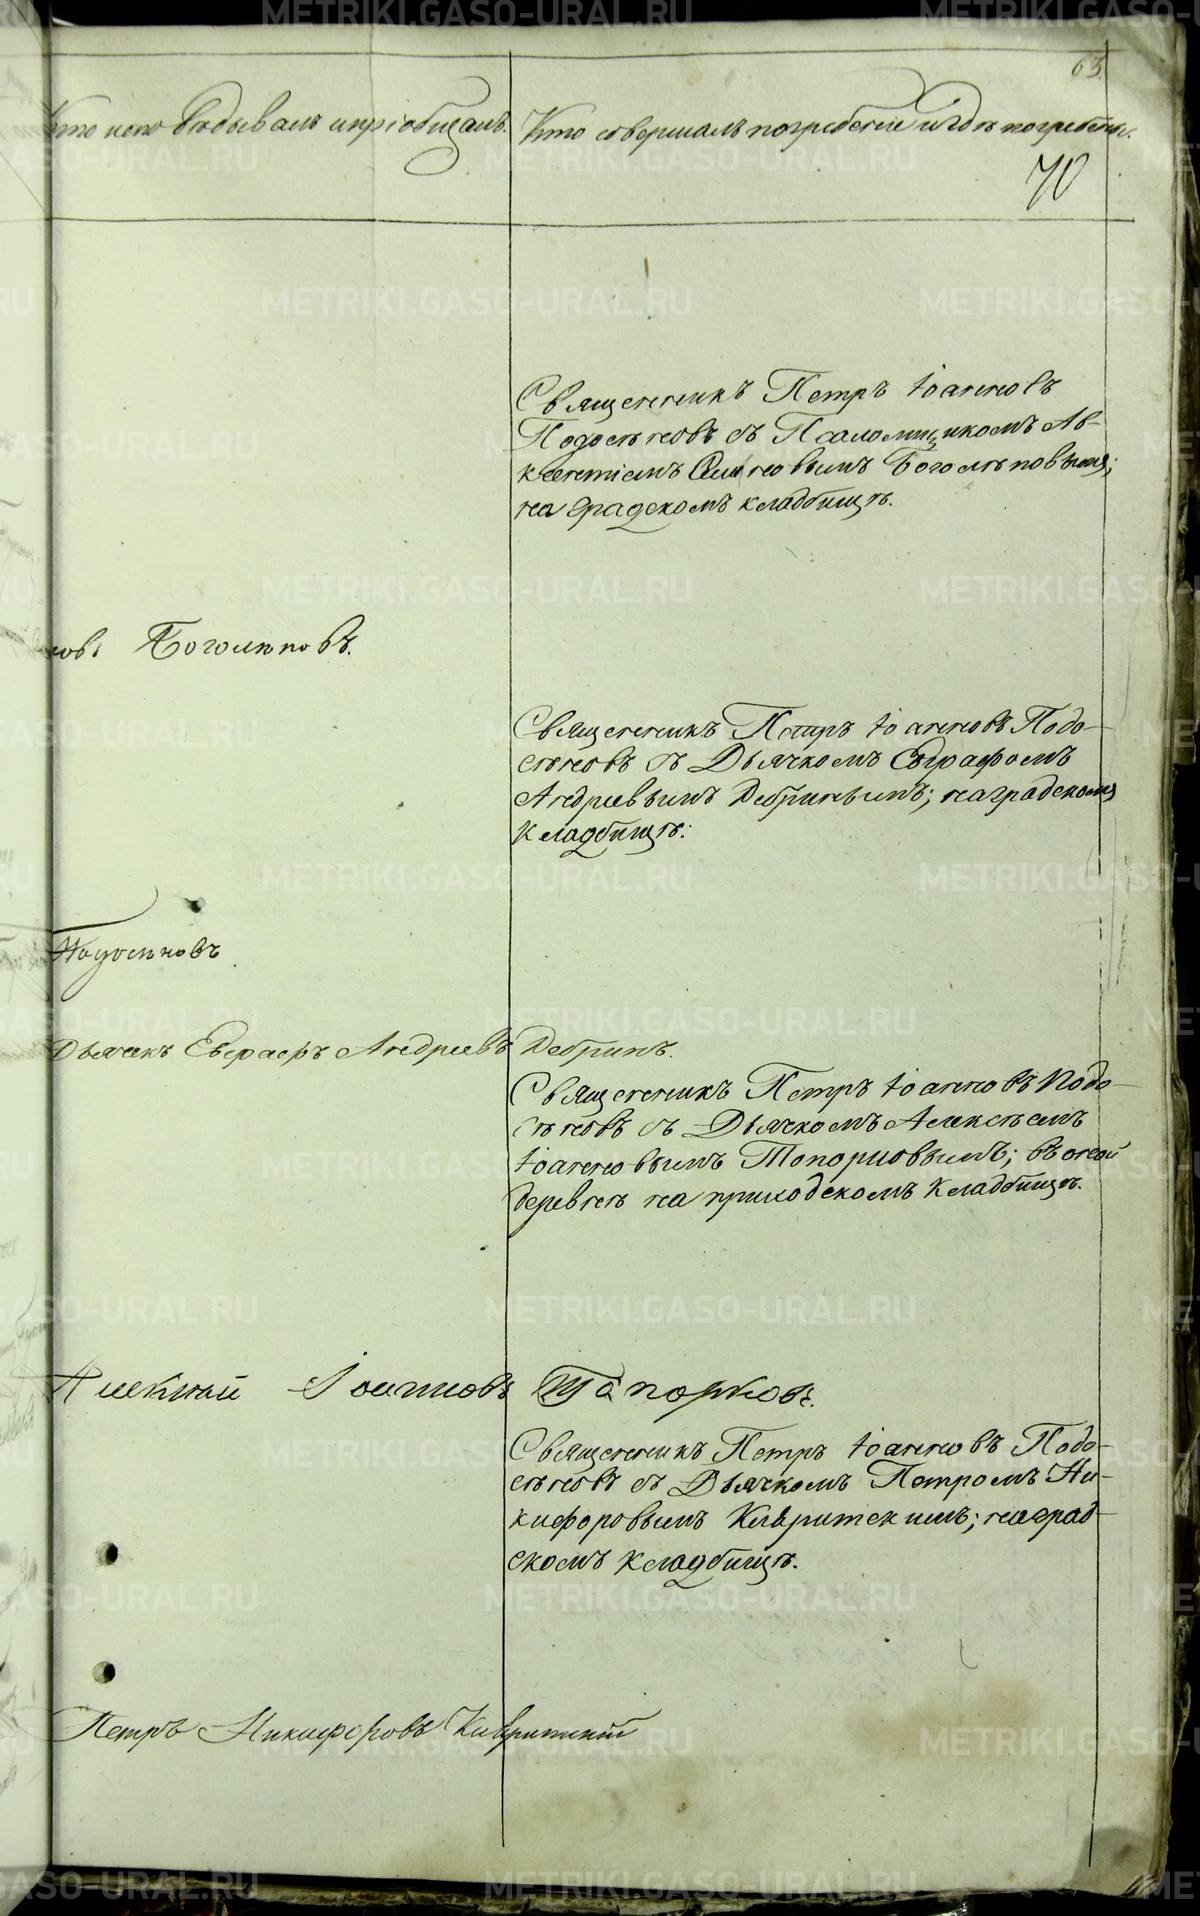 63.
Кто исповѣдывалъ и пріобщалъ. Кто совершалъ погребеніе и гдѣ погребены.
70
Священникъ Петръ Іоанновъ
Подосеновъ съ Псаломщикомъ Ав-
ксентіемъ Боголѣповымъ;
на градскомъ кладбищѣ.
Боголѣповъ.
Священникъ Петръ Іоанновъ Подо-
сѣновъ съ Дьячкомъ Евграфомъ
Андреевымъ Дебринымъ; на градскомъ
кладбищѣ.
Подосѣновъ
Дьячекъ Евграфъ Андреевъ Дебринъ.
Священникъ Петръ Іоанновъ Подо-
сѣновъ съ Дьячкомъ Алексѣемъ
Іоанновымъ Топорковымъ; въ оной
деревнѣ на приходскомъ кладбищѣ.
Алексѣй Іоанновъ Топорковъ.
Священникъ Петръ Іоанновъ Подо-
сѣновъ съ Дьячкомъ Петромъ Ни-
кифоровымъ на град-
скомъ кладбищѣ.
Петръ Никифоровъ
METRIKI.GASO-URAL.RU